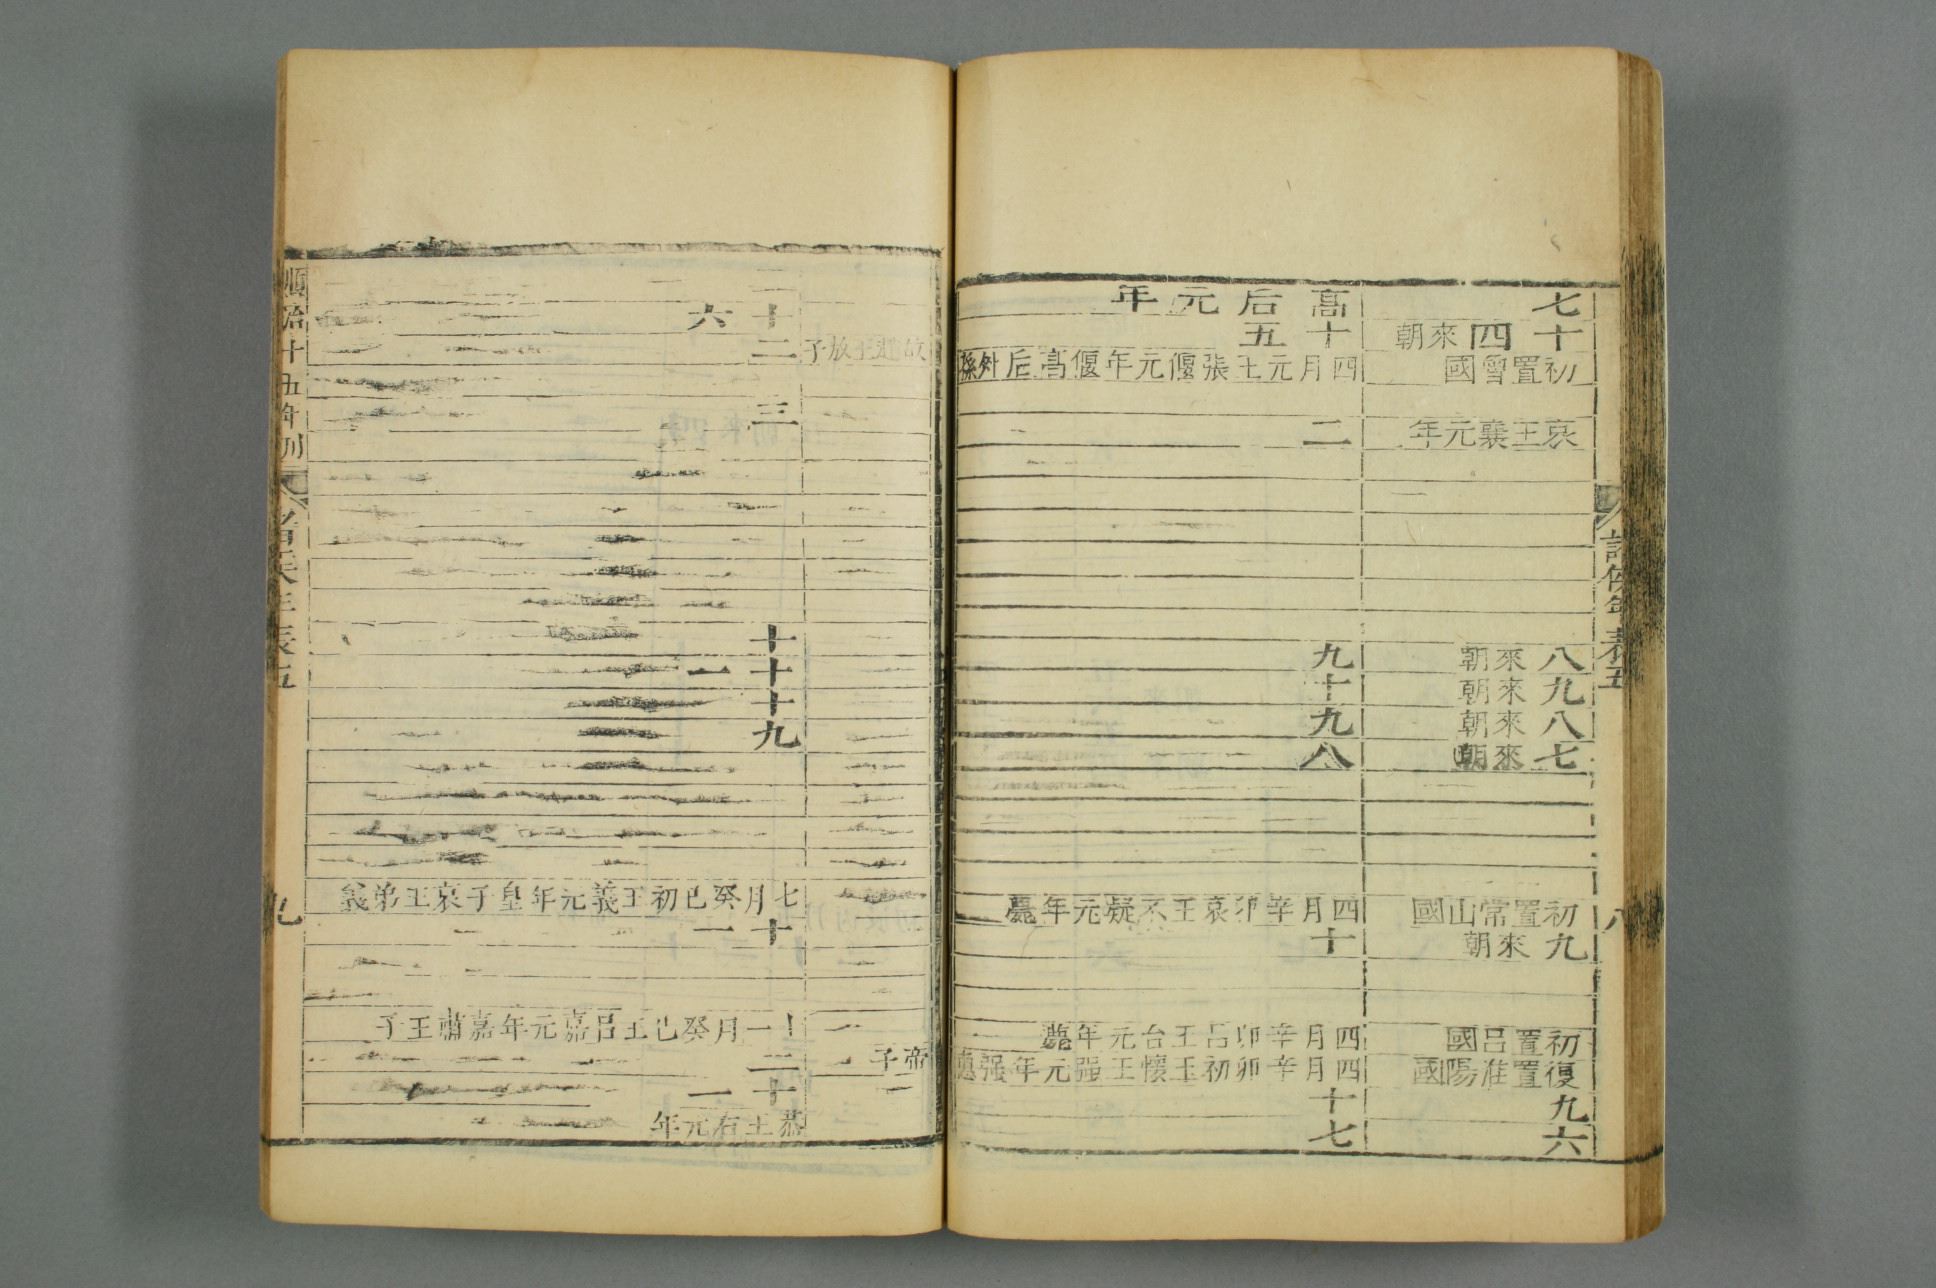 諸侯年表五
八
七
十四來朝
初置魯國
哀王襄元年
八來朝
九來朝
八來朝
七來朝
初置常山國
九來朝
初置呂國
復置淮陽國
九
六
高后元年
十五
四月元王張偃元年偃高后外孫
二
九
十
九
八
四月辛卯哀王不疑元年薨
十
四月辛卯呂王台元年薨
四月辛卯初王懷王强元年强惠
十
七
故趙王敖子
帝子
十六
二
三
十
十一
十
九
七月癸巳初王義元年皇子哀王弟義
十一
十一月癸巳王呂嘉元年嘉肅王子
二
十一
恭王右元年
順治十五年刊
年表五
九